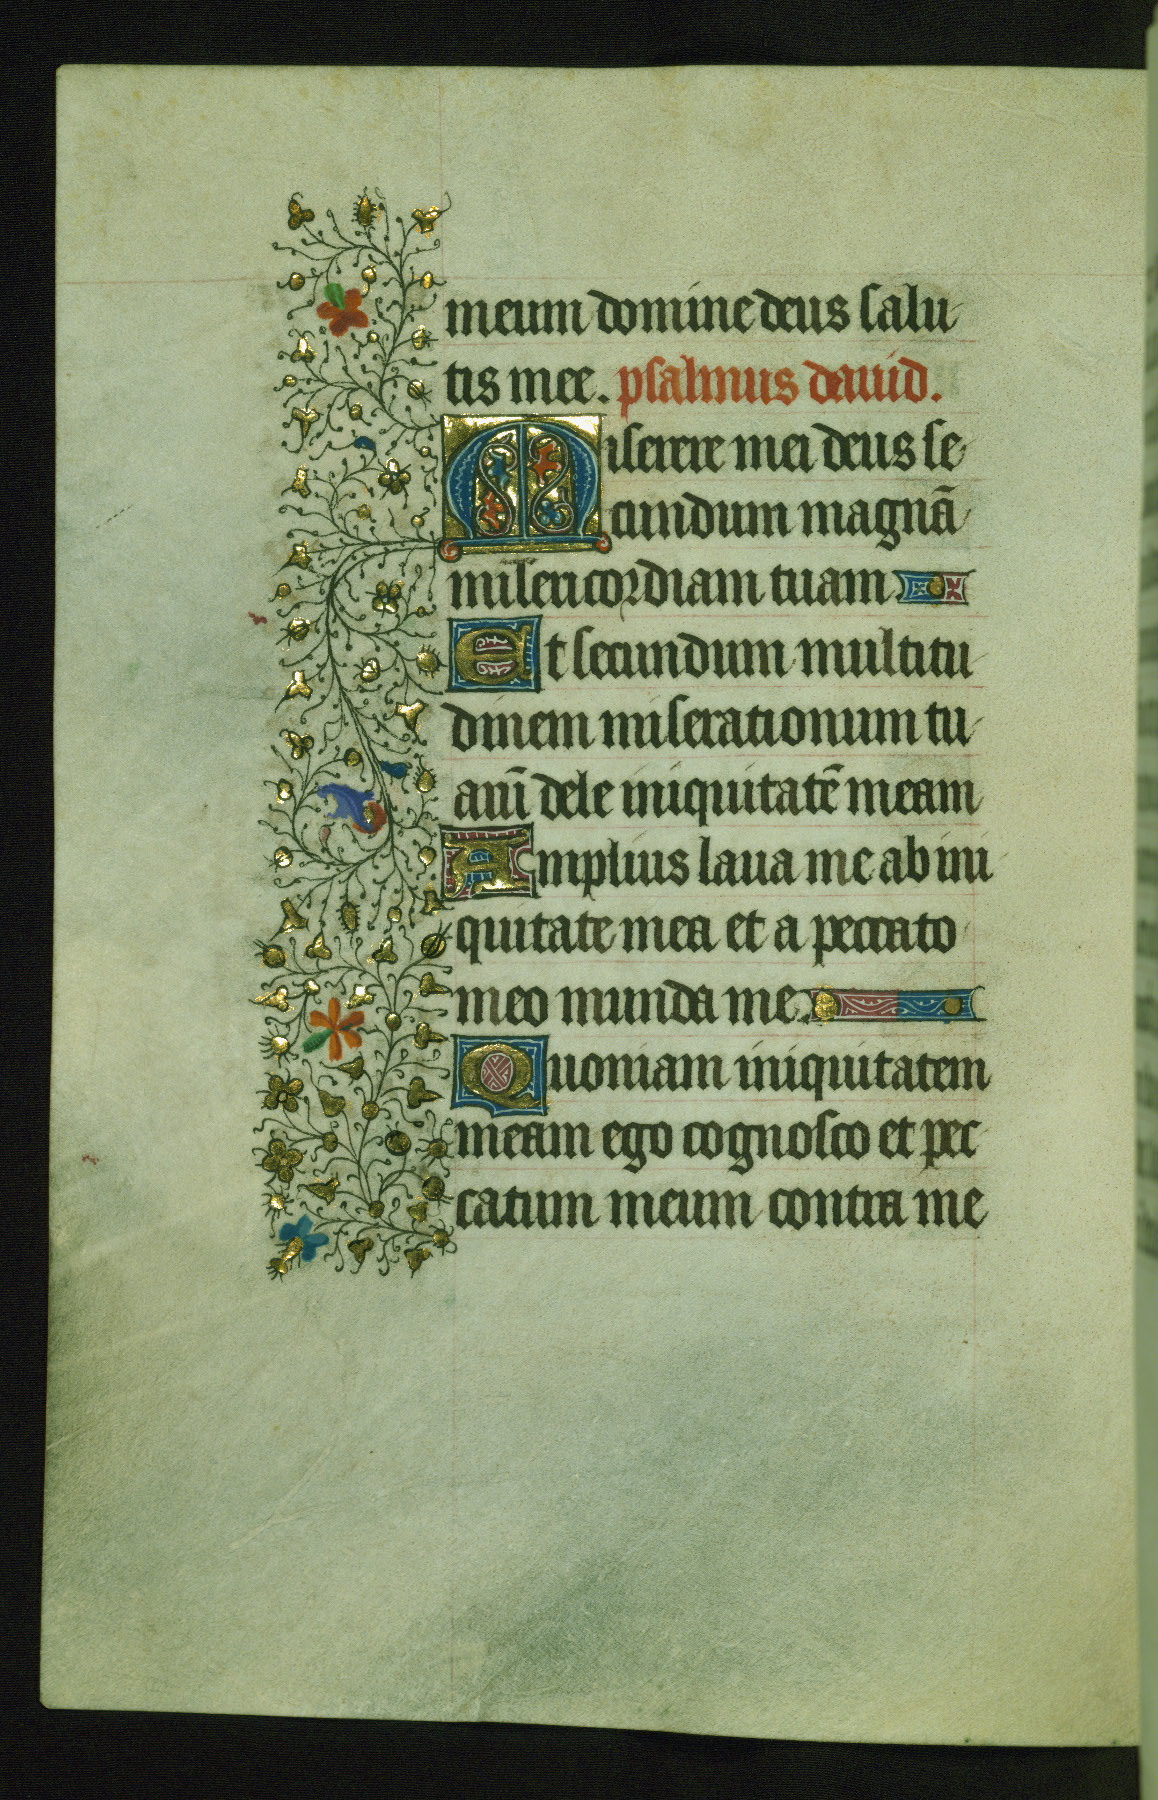 meum domine deus salu
tis mee. psalmus dauid.
Miserere mei deus se
cundum magnā
misericordiam tuam
Et secundum multitu
dinem miserationum tu
aru̅ dele iniquitatē meam
Amplius laua me ab ini
quitate mea et a peccato
meo munda me
Quoniam iniquitatem
meam ego cognosco et pec
catum meum contra me